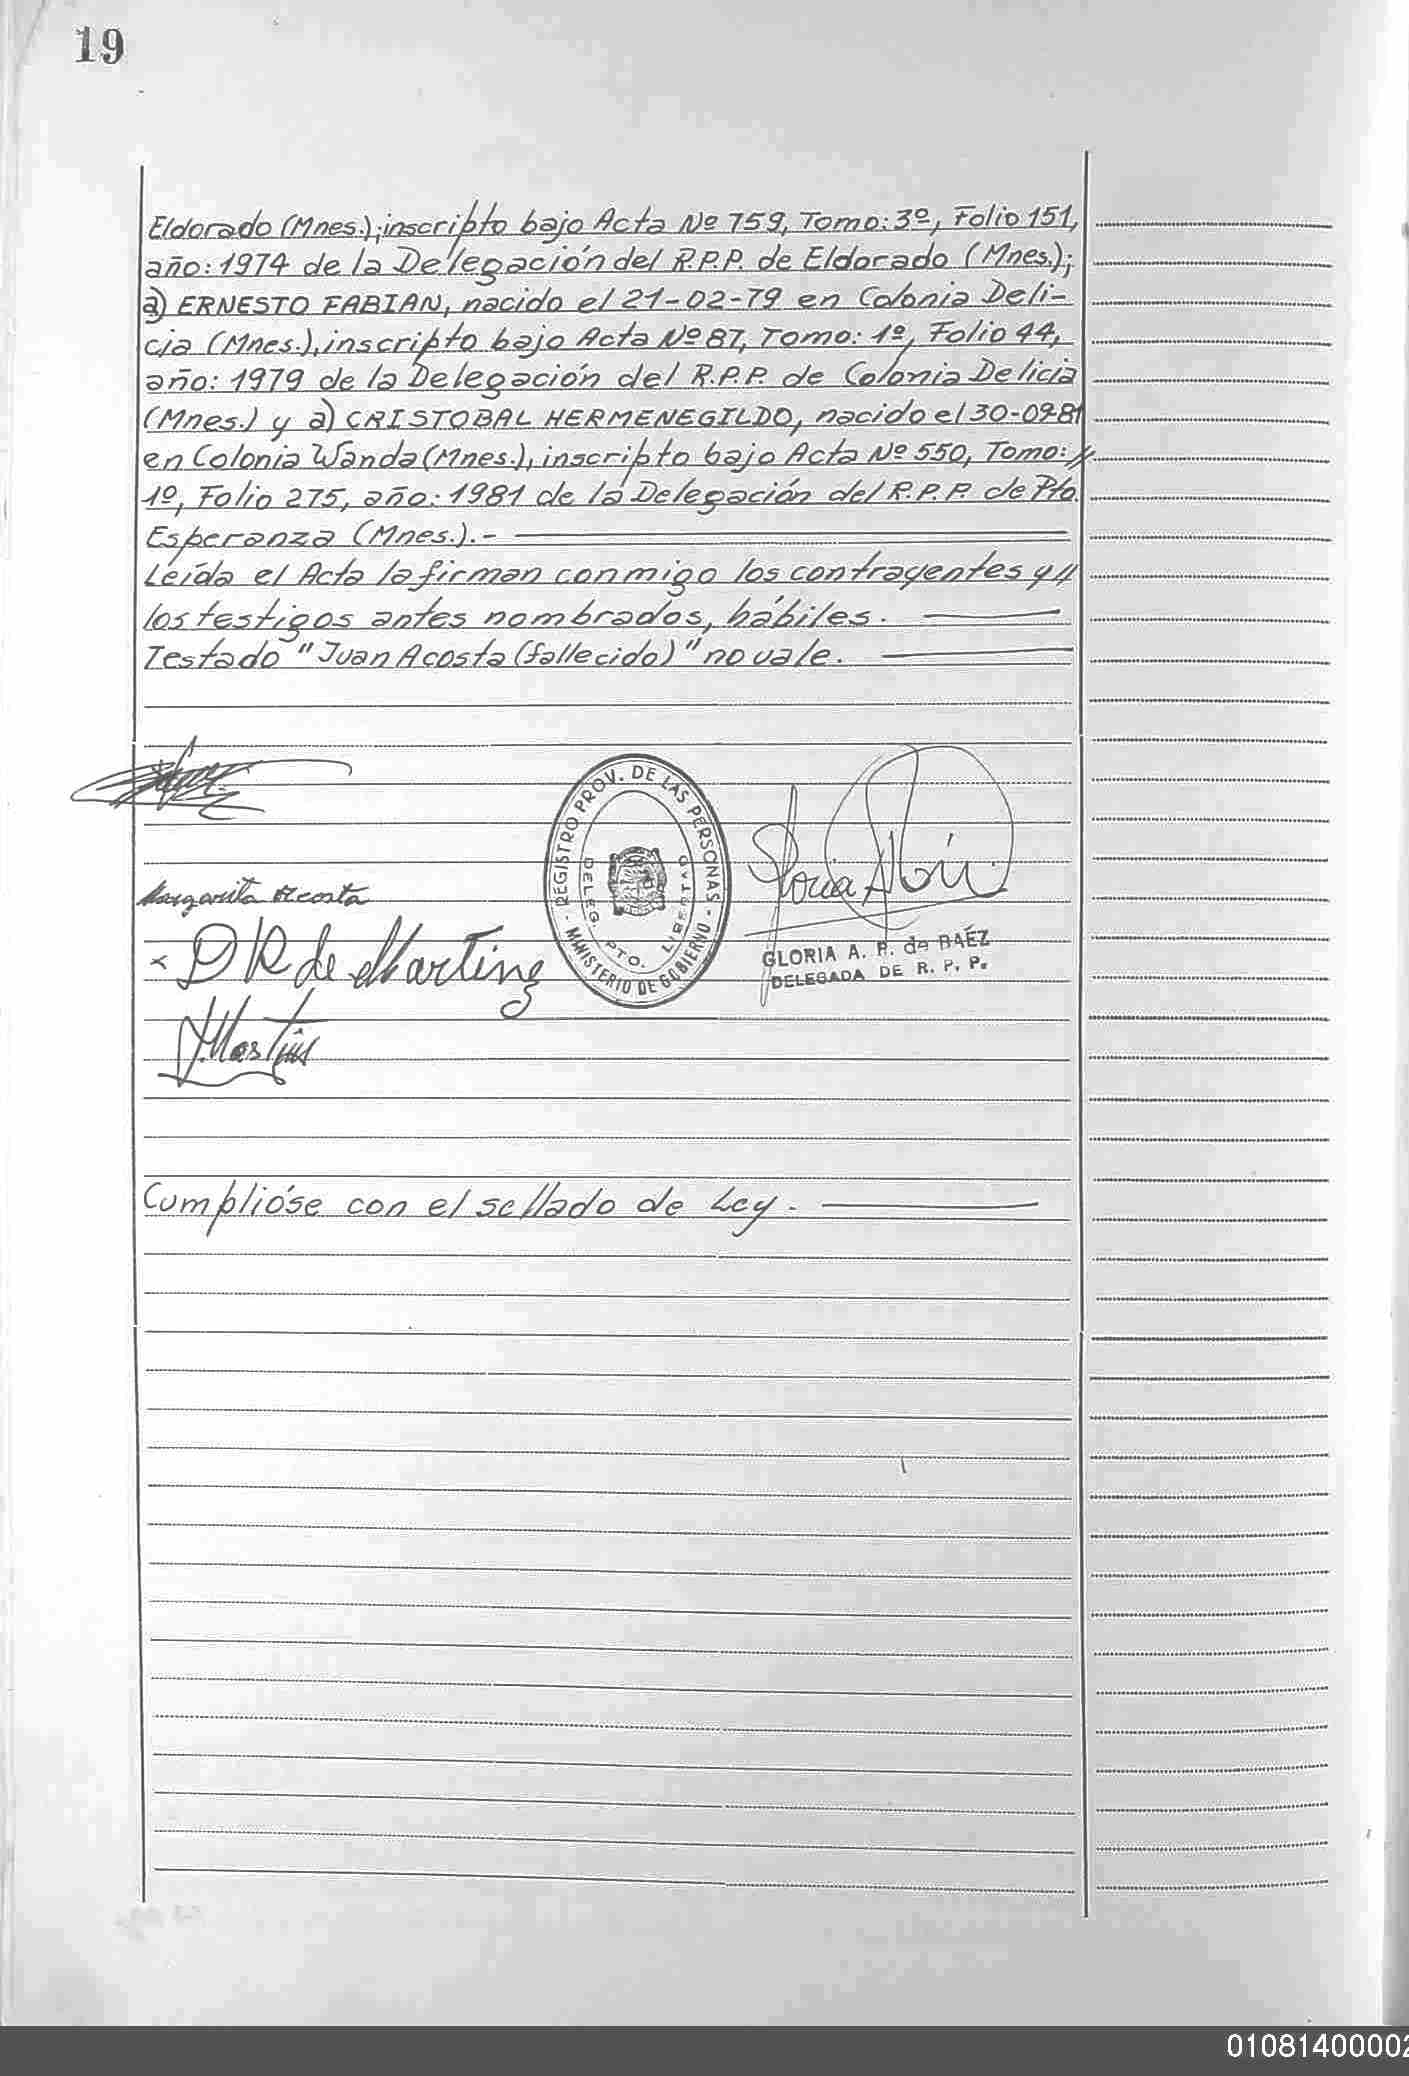 19
Eldorado (Mnes.); inscripto bajo Acta Nº 759, Tomo: 3º, Folio 151,
año: 1974 de la Delegación del R.P.P. de Eldorado (Mnes.);
a) ERNESTO FABIAN, nacido el 21-02-79 en Colonia Deli-
cia (Mnes.), inscripto bajo Acta Nº 87, Tomo: 1º, Folio 44,
año: 1979 de la Delegación del R.P.P. de Colonia Delicia
(Mnes.) y a) CRISTOBAL HERMENEGILDO, nacido el 30-09-81
en Colonia Wanda (Mnes.), inscripto bajo Acta Nº 550, Tomo: //
1º, Folio 275, año: 1981 de la Delegación del R.P.P. de Pto.
Esperanza (Mnes.).-
Leída el Acta la firman conmigo los contrayentes y //
los testigos antes nombrados, hábiles.
Testado "Juan Acosta (fallecido)" no vale.
REGISTRO PROV. DE LAS PERSONAS - MINISTERIO DE GOBIERNO -
DELEG. PTO. LIBERTAD
Margarita Acosta
x D R de Martinez
GLORIA A. R. de BAÉZ
DELEGADA DE R. P. P.
Cumplióse con el sellado de Ley.
01081400002